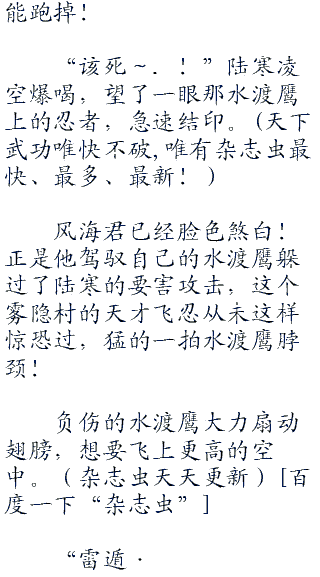 能跑掉！
“该死～．！”陆寒凌
空爆喝，望了一眼那水渡鹰
上的忍者，急速结印。(天下
武功唯快不破,唯有杂志虫最
快、最多、最新！)
风海君已经脸色煞白！
正是他驾驭自己的水渡鹰躲
过了陆寒的要害攻击，这个
雾隐村的天才飞忍从未这样
惊恐过，猛的一拍水渡鹰脖
颈！
负伤的水渡鹰大力扇动
翅膀，想要飞上更高的空
中。（杂志虫天天更新）[百
度一下“杂志虫”]
“雷遁·